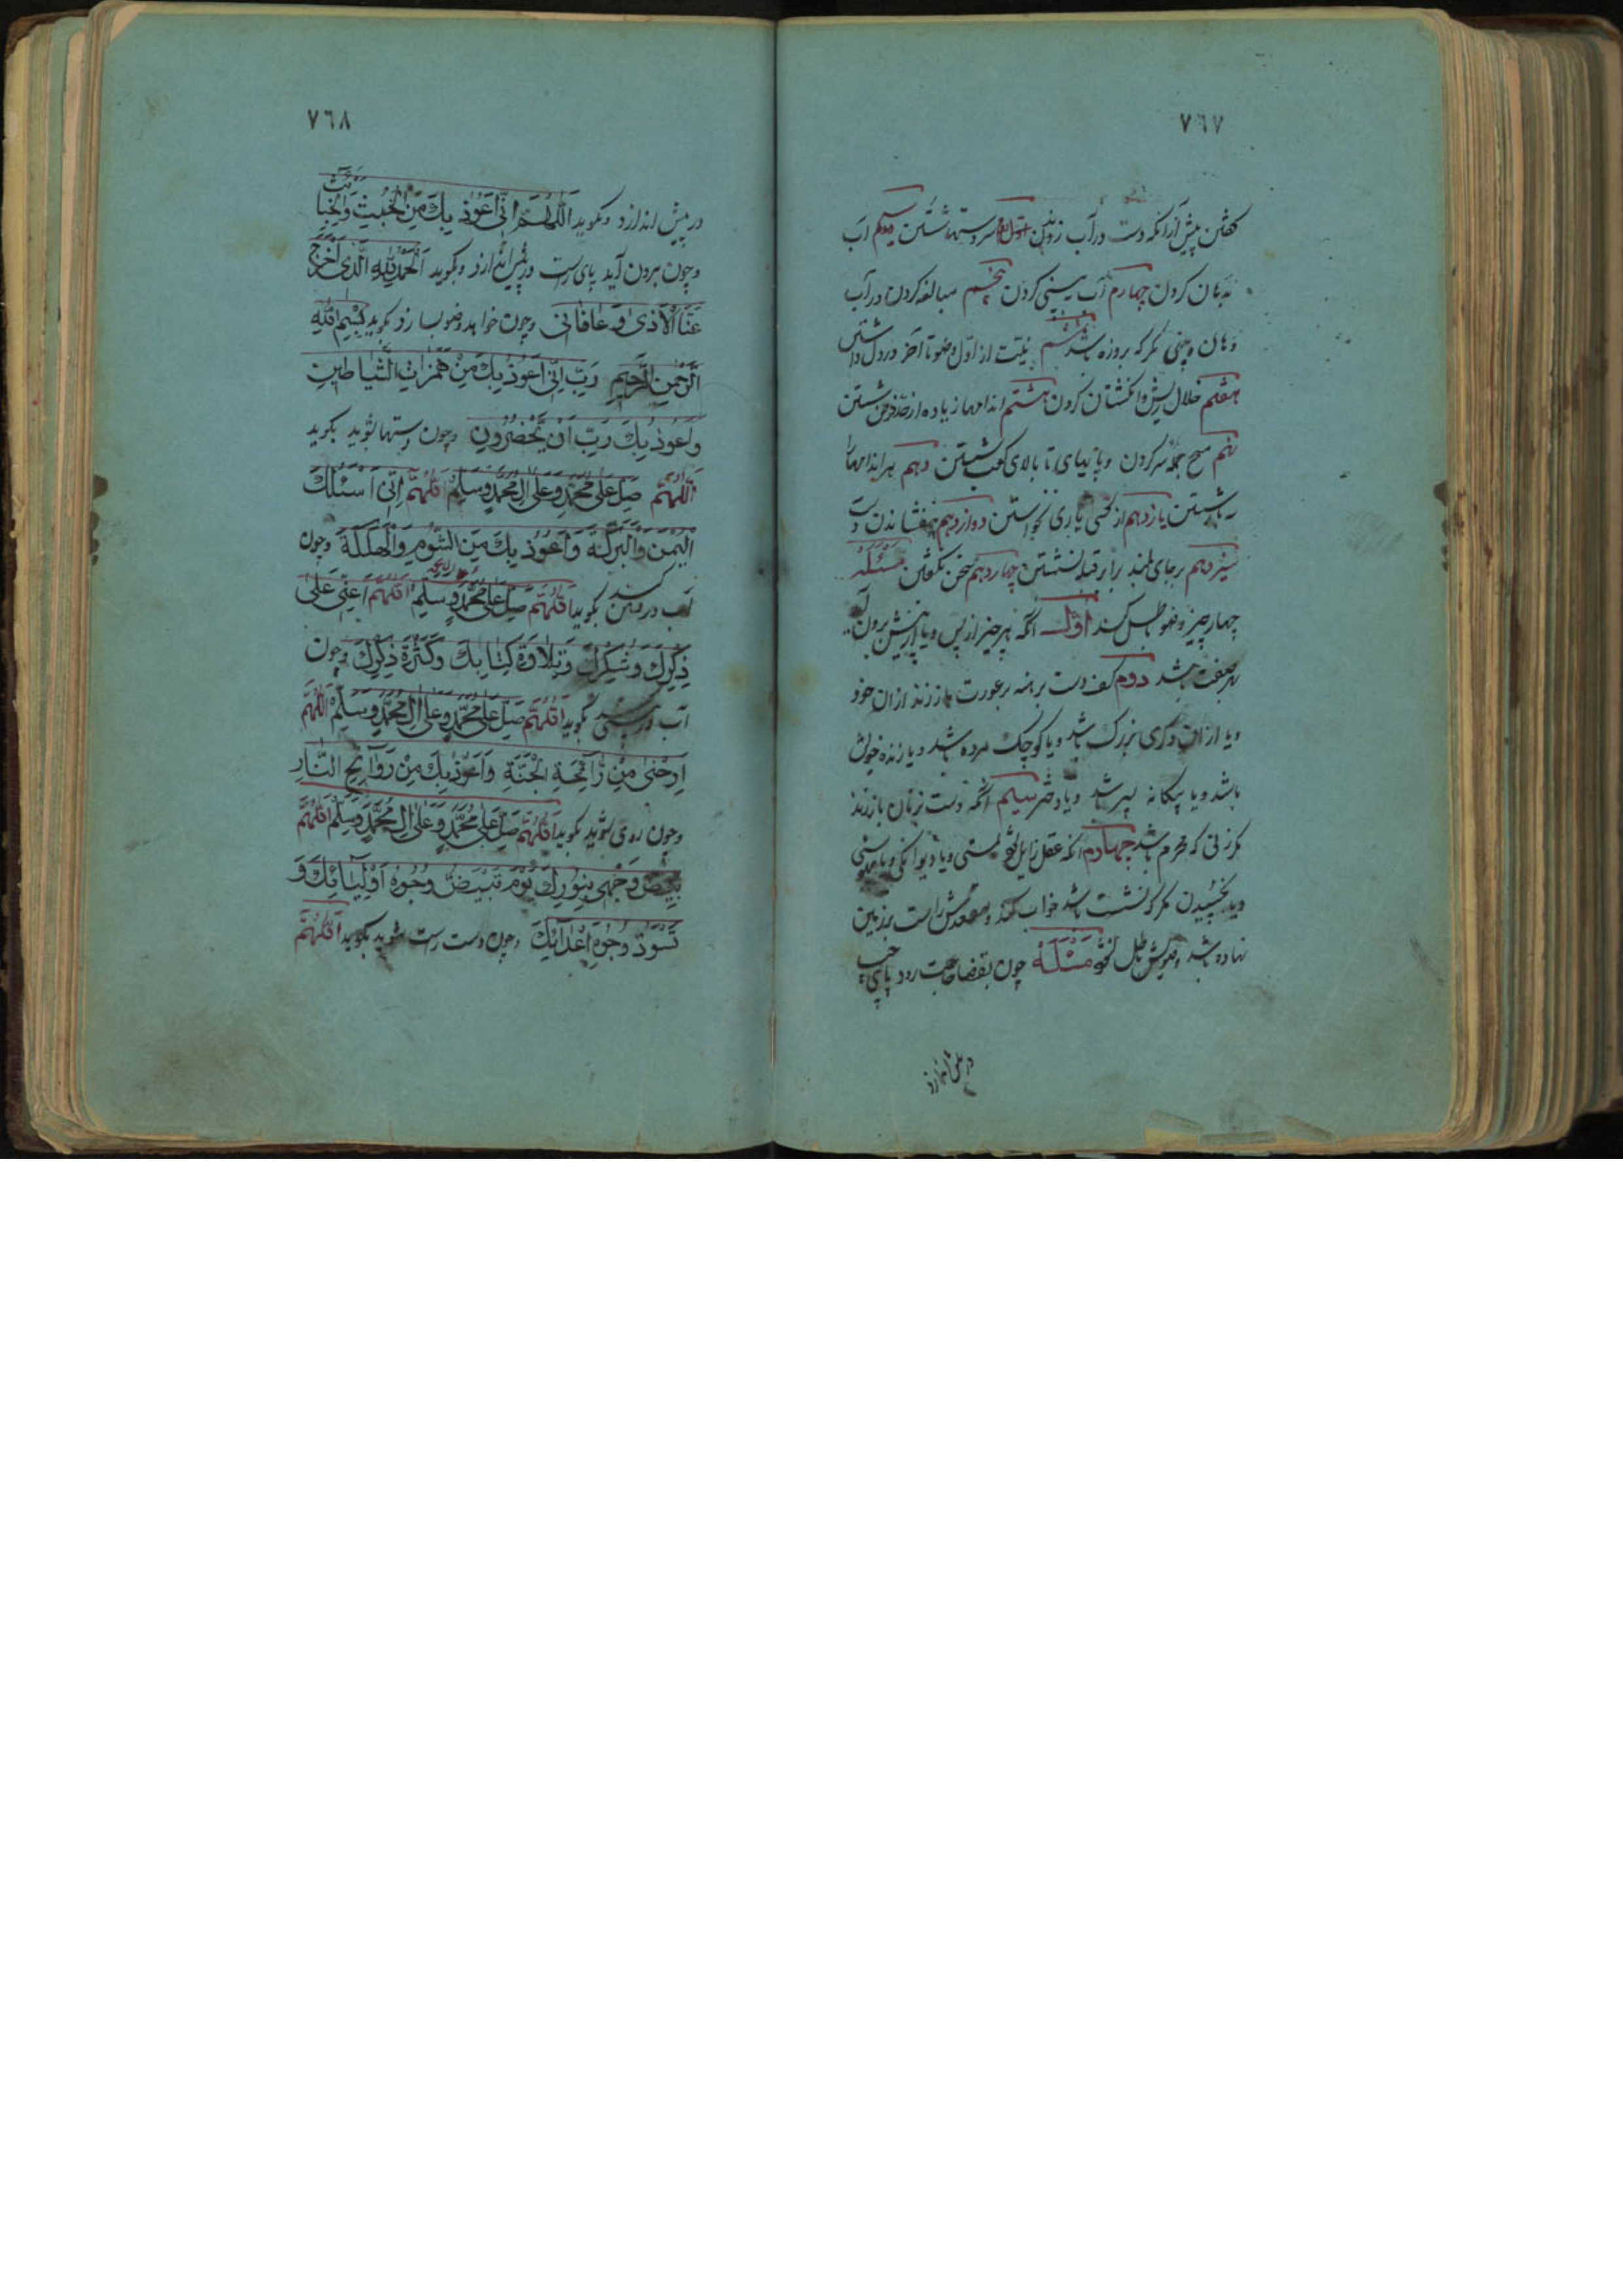 ٧٦٧
كفتن پیش از آنکه دست در آب زدن اول سر دستها شستن سیم آب
بدهان کردن چهارم آب به بینی کردن پنجم مبالغه کردن در آب
دهان و بینی مکر که بروزه باشد ششم نیّت از اوّل وضو تا آخر در دل داشتن
هفتم خلال ریش و انکشتان کردن هشتم اندامها زیاده از حدّ فرض شستن
نهم مسح جمله سر کردن و پایهای تا بالای کعب شستن دهم هر اندامها
شستن یازدهم از کسی یاری نخواستن دوازدهم نیفشاندن دست
سیزدهم بر جای بلند برابر قبله نشستن چهاردهم سخن نکفتن مسئله
چهار چیز وضو باطل کند اوّل آنکه هر چیز از پس و یا از پیش برون آید
بهر صفت باشد دوم کف دست برهنه بر عورت باز زند از ان خود
و یا از ان دکری بزرک باشد و یا کوچک مرده باشد و یا زنده خویش
باشد و یا بیکانه پسر باشد و یا دختر سیم آنکه دست بزنان باز زند
مکر زنی که محرم باشد چهارم آنکه عقل زایل شود بمستی و یا دیوانکی و یا
و یا بخسپیدن مکر که نشسته باشد خواب کند و مقعدش راست بر زمین
نهاده باشد وضویش باطل نشود مسئله چون بقضا حاجت رود پای چپ
در پیش اندازد
٧٦٨
در پیش اندازد و بکوید اَللّٰهُمَّ اِنّی اَعُوذُ بِكَ مِنَ الْخُبْثِ وَالْخَبَائِثِ
و چون برون آید پای راست در پیش اندازد و بکوید اَلْحَمْدُ لِلّٰهِ الَّذی اَخْرَجَ
عَنَّا الْاَذیٰ وَ عَافَانی و چون خواهد وضو بسازد بکوید بِسْمِ اللّٰهِ
الرَّحْمٰنِ الرَّحِیمِ رَبِّ اِنّی اَعُوذُ بِكَ مِنْ هَمَزَاتِ الشَّیَاطِینِ
وَاَعُوذُ بِكَ رَبِّ اَنْ یَحْضُرُونِ و چون دستها شوید بکوید
اَللّٰهُمَّ صَلِّ عَلیٰ مُحَمَّدٍ وَعَلیٰ اٰلِ مُحَمَّدٍ وَسَلِّمْ اَللّٰهُمَّ اِنّی اَسْئَلُكَ
الْیُمْنَ وَالْبَرَكَةَ وَاَعُوذُ بِكَ مِنَ الشُّومِ وَالْهَلَكَةِ و چون
آب در دهن کند بکوید اَللّٰهُمَّ صَلِّ عَلیٰ مُحَمَّدٍ وَسَلِّمْ اَللّٰهُمَّ اَعِنّی عَلیٰ
ذِكْرِكَ وَشُكْرِكَ وَتِلَاوَةِ كِتَابِكَ وَكَثْرَةِ ذِكْرِكَ و چون
آب در بینی کند بکوید اَللّٰهُمَّ صَلِّ عَلیٰ مُحَمَّدٍ وَعَلیٰ اٰلِ مُحَمَّدٍ وَسَلِّمْ اَللّٰهُمَّ
اَرِحْنی مِنْ رَائِحَةِ الْجَنَّةِ وَاَعُوذُ بِكَ مِنْ رَوَائِحِ النَّارِ
و چون روی شوید بکوید اَللّٰهُمَّ صَلِّ عَلیٰ مُحَمَّدٍ وَعَلیٰ اٰلِ مُحَمَّدٍ وَسَلِّمْ اَللّٰهُمَّ
بَیِّضْ وَجْهی بِنُورِكَ یَوْمَ تَبْیَضُّ وُجُوهُ اَوْلِیَائِكَ وَ
تَسْوَدُّ وُجُوهُ اَعْدَائِكَ و چون دست راست شوید بکوید اَللّٰهُمَّ